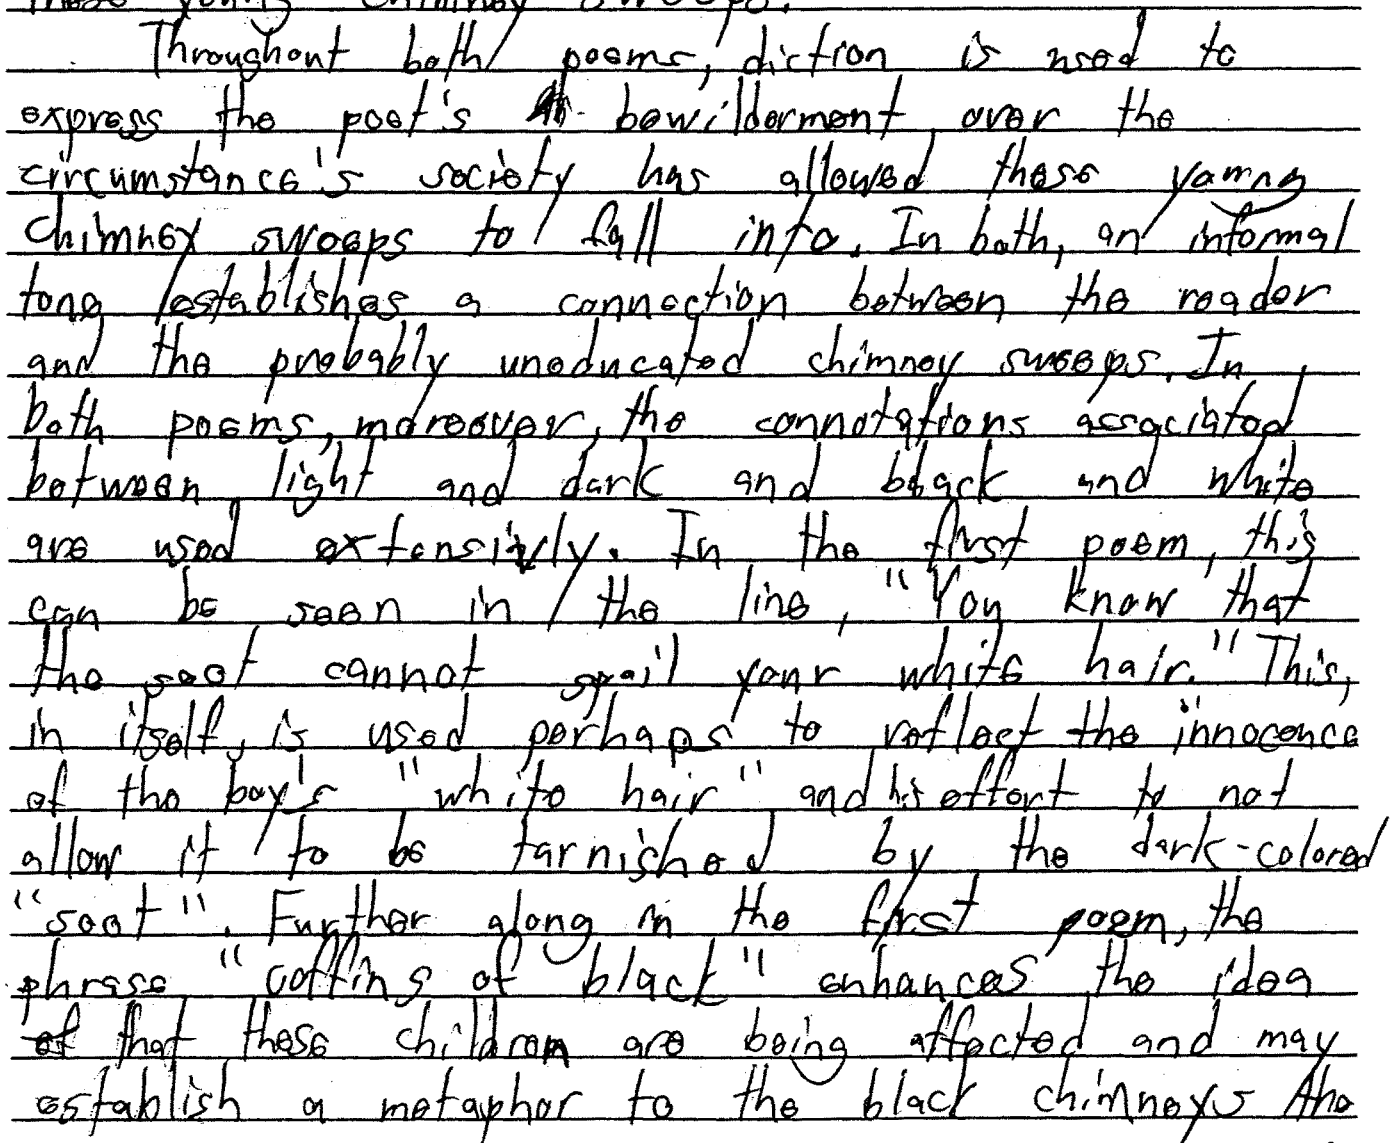 these young chimney sweeps.
Throughout both poems, diction is used to
express the poet's bewilderment over the
circumstance's society has allowed these young
chimney sweeps to fall into. In both, an informal
tone establishes a connection between the reader
and the probably uneducated chimney sweeps. In
both poems, moreover, the connotations associated
between light and dark and black and white
are used extensively. In the first poem, this
can be seen in the line, "You know that
the soot cannot spoil your white hair." This,
in itself, is used perhaps to reflect the innocence
of the boy's "white hair" and his effort to not
allow it to be tarnished by the dark-colored
"soot". Further along in the first poem, the
phrase "coffins of black" enhances the idea
of that these children are being affected and may
establish a metaphor to the black chimneys the